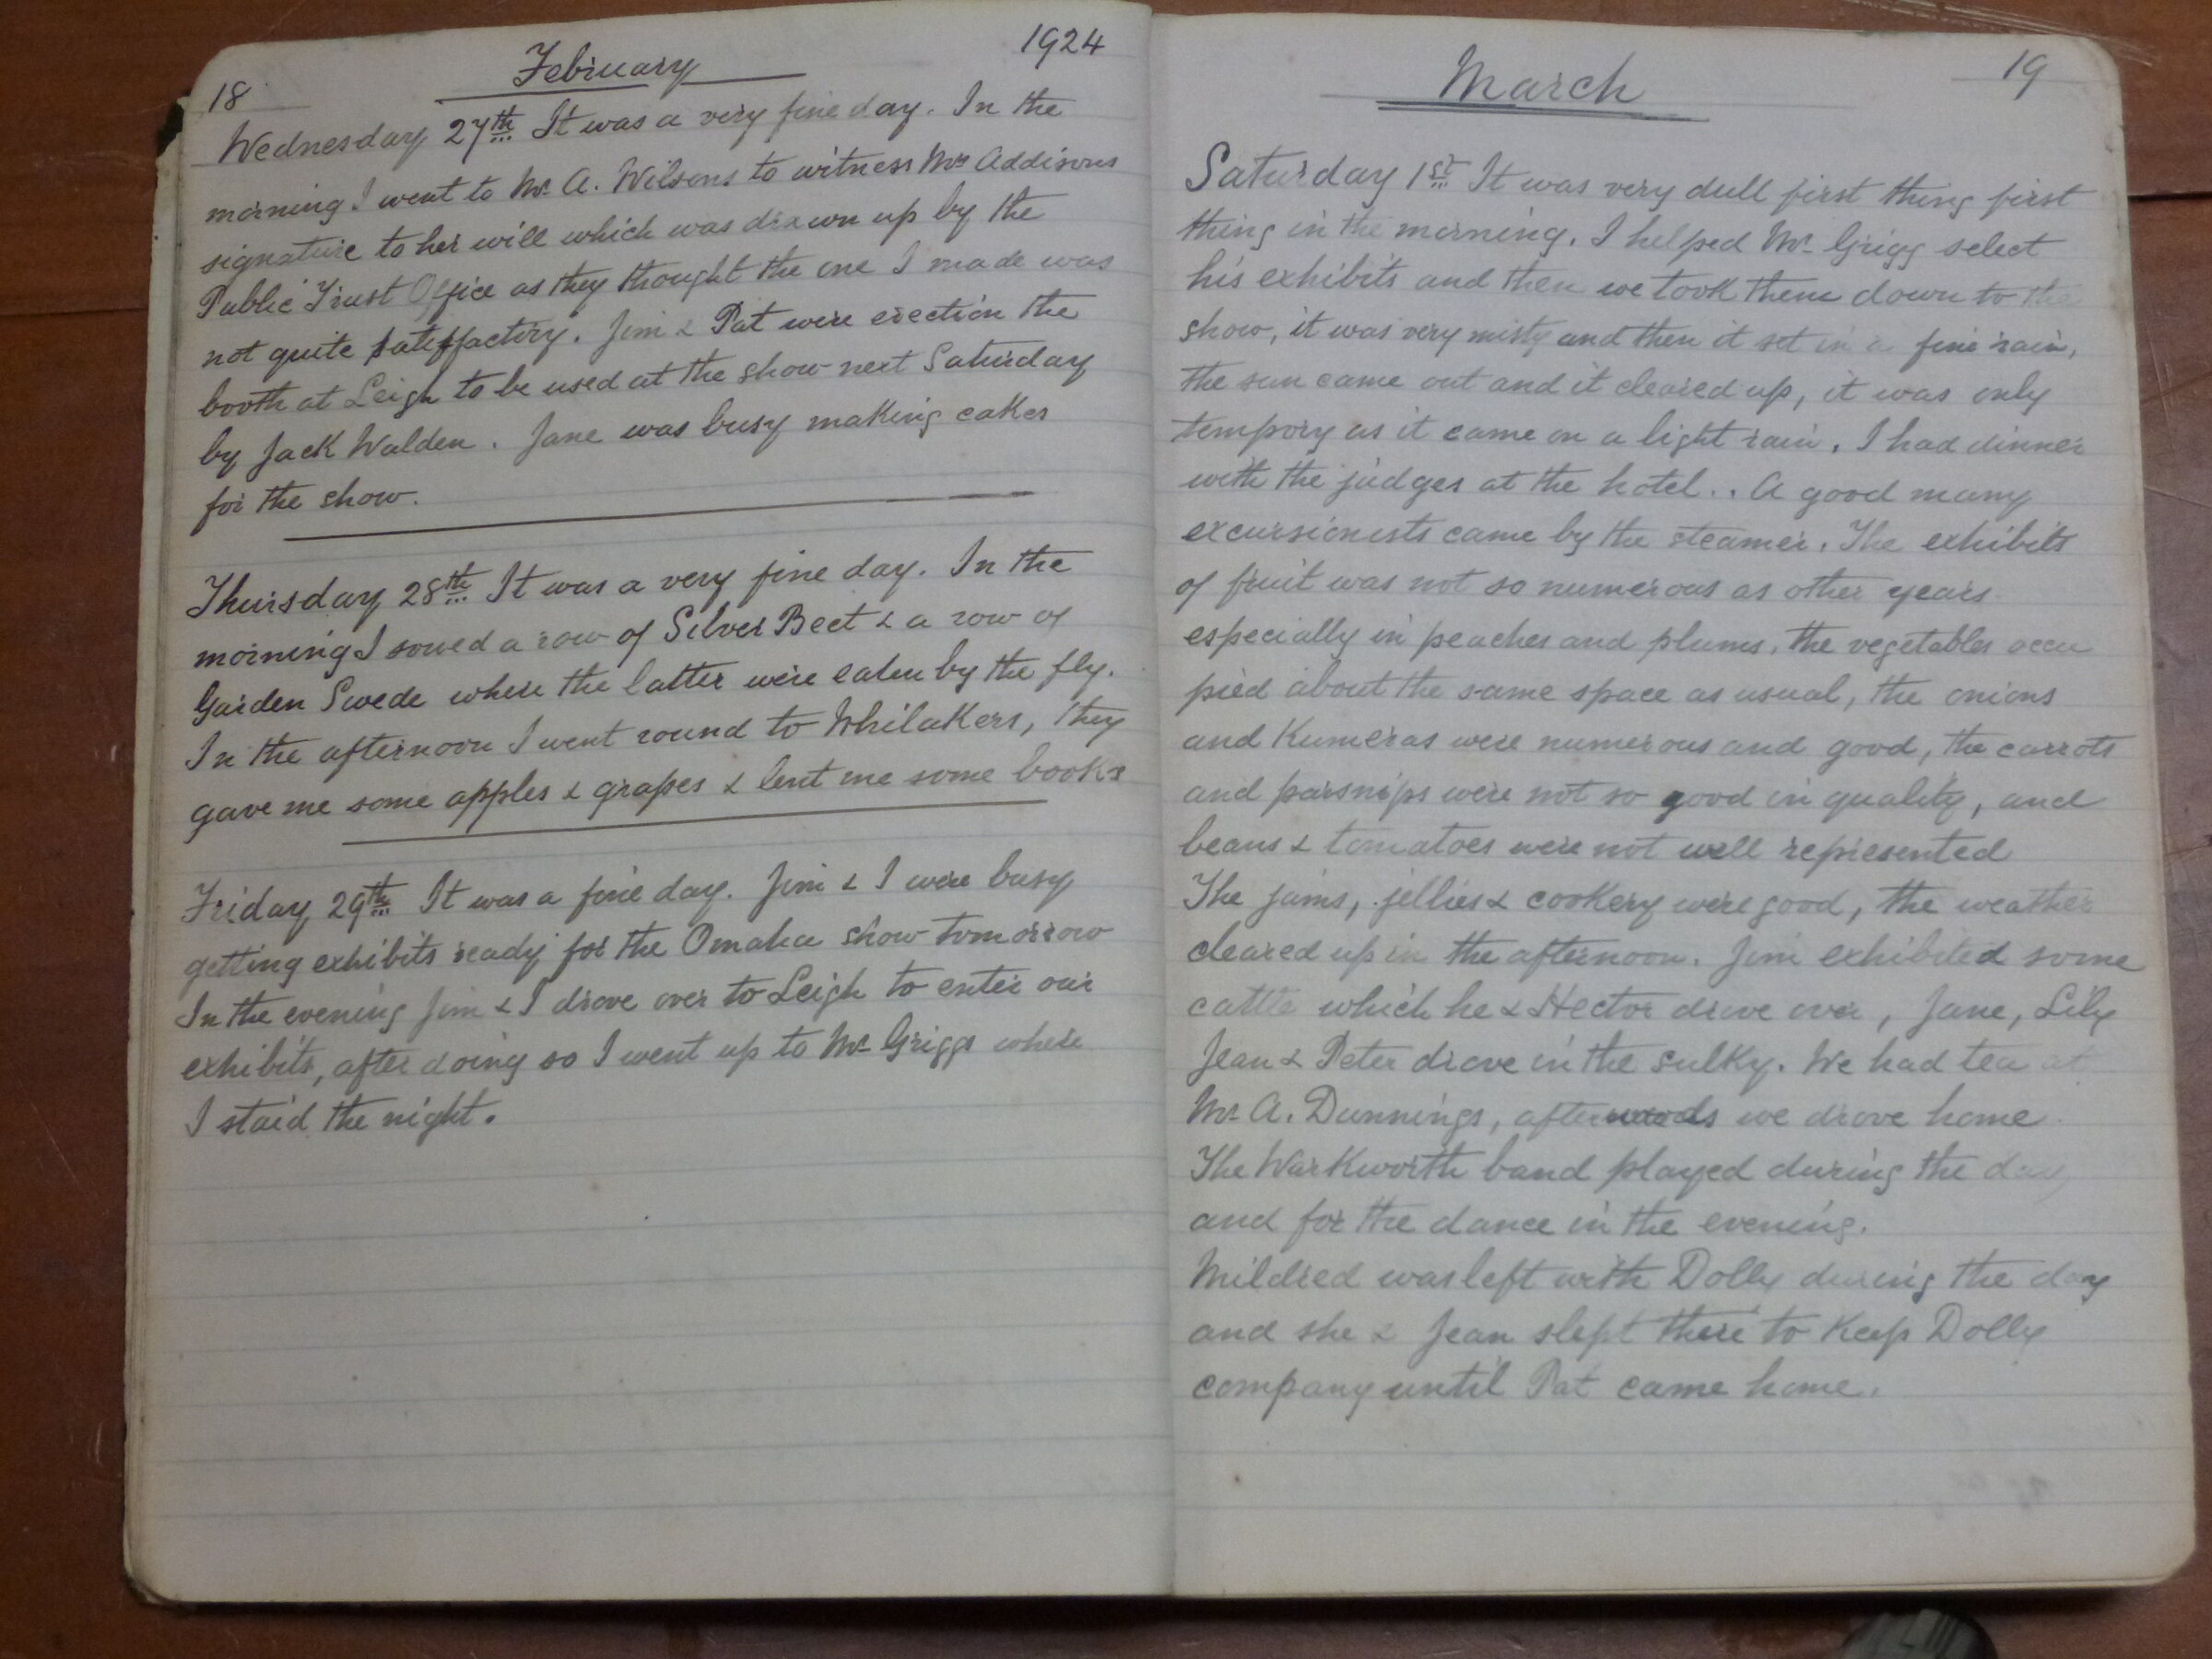 18 February 1924
Wednesday 27th It was a very fine day. In the
morning I went to Mr A. Wilsons to witness Mrs Addisons
signature to her will which was drawn up by the
Public Trust Office as they thought the one I made was
not quite satisfactory. Jim & Pat were erection the
booth at Leigh to be used at the show next Saturday
by Jack Walden. Jane was busy making cakes
for the show.
Thursday 28th It was a very fine day. In the
morning I sowed a row of Silver Beet & a row of
Garden Swede where the latter were eaten by the fly.
In the afternoon I went round to Whitakers, they
gave me some apples & grapes & lent me some books
Friday 29th It was a fine day. Jim & I were busy
getting exhibits ready for the Omaha show tomorrow
In the evening Jim & I drove over to Leigh to enter our
exhibits, after doing so I went up to Mr Griggs where
I staid the night.
March 19
Saturday 1st It was very dull first thing first
thing in the morning. I helped Mr Grigg select
his exhibits and then we took them down to the
show, it was very misty and then it set in a fine rain,
the sun came out and it cleared up, it was only
tempory as it came on a light rain. I had dinner
with the judges at the hotel.. A good many
excursionists came by the steamer. The exhibits
of fruit was not so numerous as other years
especially in peaches and plums, the vegetables occu
pied about the same space as usual, the onions
and Kumeras were numerous and good, the carrots
and parsnips were not so good in quality, and
beans & tomatoes were not well represented
The jams, jellies & cookery were good, the weather
cleared up in the afternoon. Jim exhibited some
cattle which he & Hector drove over, Jane, Lily
Jean & Peter drove in the sulky. We had tea at
Mr A. Dunnings, afterwards we drove home
The Warkworth band played during the day
and for the dance in the evening.
Mildred was left with Dolly during the day
and she & Jean slept there to keep Dolly
company until Pat came home.